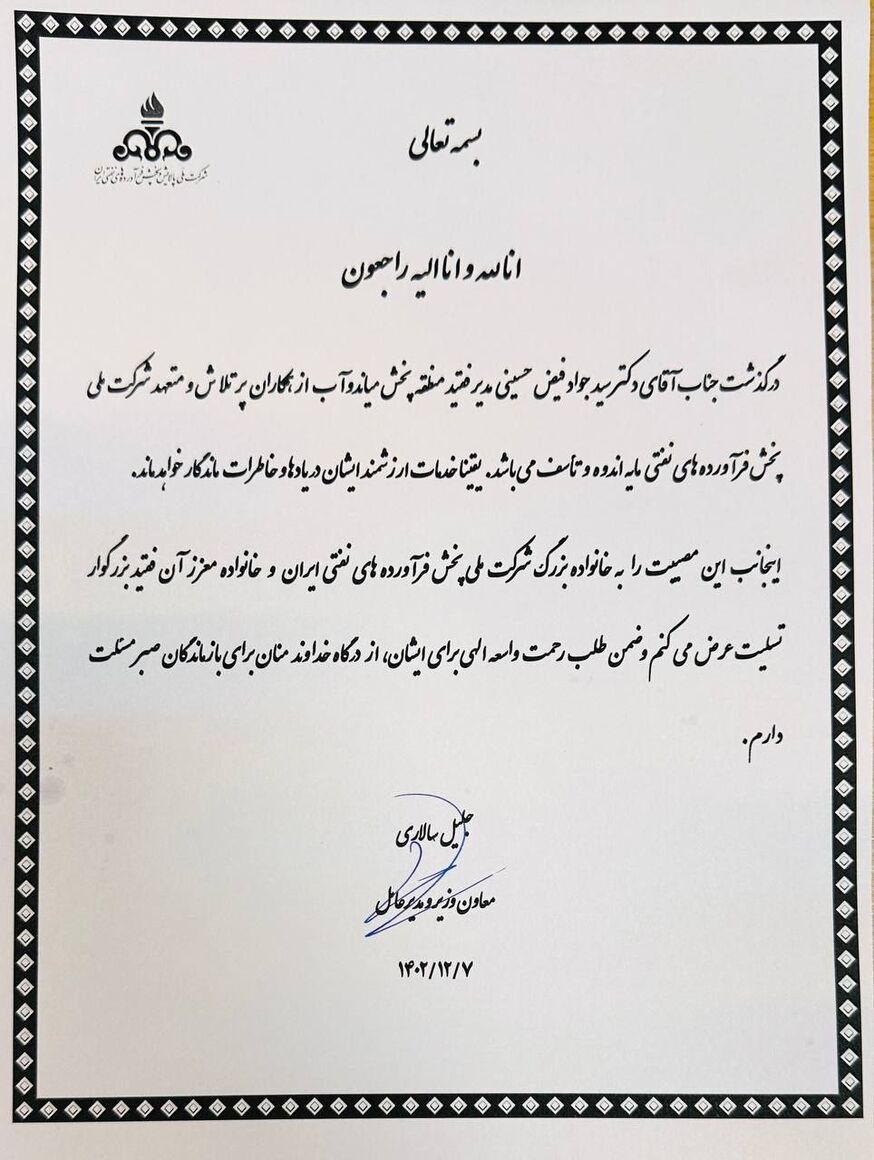 شرکت ملی پالایش و پخش فرآورده های نفتی ایران
بسمه تعالی
انا لله و انا الیه راجعون
درگذشت جناب آقای دکتر سید جواد فیض حسینی مدیر فقید منطقه پخش میاندوآب از همکاران پر تلاش و متعهد شرکت ملی
پخش فرآورده های نفتی مایه اندوه و تأسف می باشد. یقینا خدمات ارزشمند ایشان در یادها و خاطرات ماندگار خواهد ماند.
اینجانب این مصیبت را به خانواده بزرگ شرکت ملی پخش فرآورده های نفتی ایران و خانواده معزز آن فقید بزرگوار
تسلیت عرض می کنم و ضمن طلب رحمت واسعه الهی برای ایشان، از درگاه خداوند منان برای بازماندگان صبر مسئلت
دارم.
جلیل سالاری
معاون وزیر و مدیرعامل
۱۴۰۲/۱۲/۷